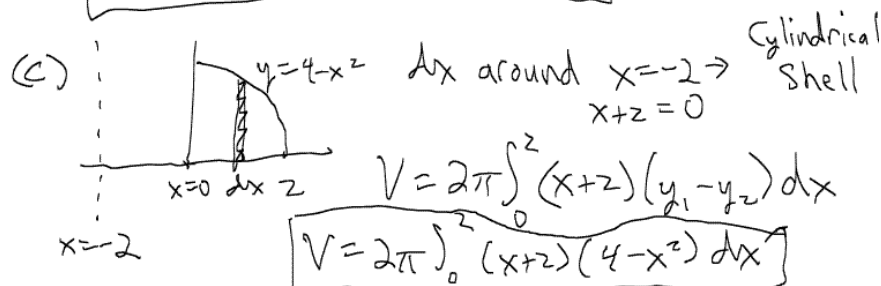 (c) y=4-x² dx around x=-2 → Cylindrical Shell
x+2=0
x=0 dx 2
x=-2
V = 2π∫₀² (x+2)(y₁-y₂) dx
V = 2π∫₀² (x+2)(4-x²) dx